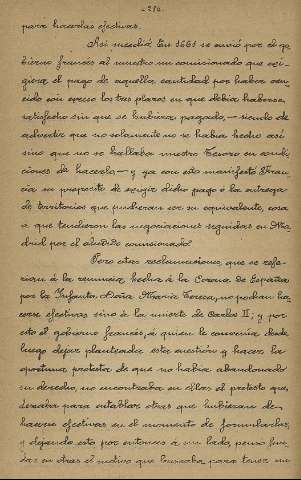 -270-
para hacerlas efectivas.
Así sucedió. En 1661 se envió por el go-
bierno francés al nuestro un comisionado que exi-
giera el pago de aquella cantidad por haber ven-
cido con exceso los tres plazos en que debía haberse
satisfecho sin que se hubiera pagado,- siendo de
advertir que no solamente no se había hecho así
sino que no se hallaba nuestro Tesoro en condi-
ciones de hacerlo- y ya con esto manifestó Fran-
cia su propósito de exigir dicho pago ó la entrega
de territorios que pudieran ser su equivalente, cosa
a que tendieron las negociaciones seguidas en Ma-
drid por el aludido comisionado.
Pero estas reclamaciones, que se refe-
rían á la renuncia hecha á la Corona de España
por la Infanta Doña María Teresa, no podían ha-
cerse efectivas sino á la muerte de Carlos II; y por
esto el gobierno francés, á quien le convenía desde
luego dejar planteada esta cuestión y hacer la
oportuna protesta de que no había abandonado
su derecho, no encontraba en ellas el pretesto que
deseaba para entablar otras que hubieran de
hacerse efectivas en el momento de formularlas,
y dejando esto por entonces á un lado, pensó fun-
dar en otras el motivo que buscaba para tener un